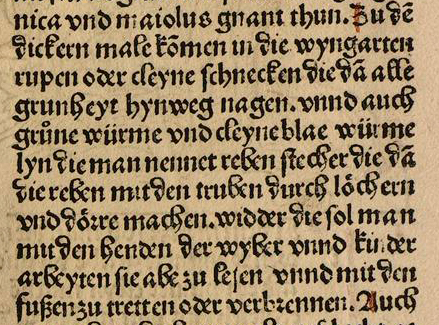 nica vnd maiolus gnant thun. Zu dē
dickern male kōmen in die wyngarten
rupen oder cleyne schnecken die dā alle
grunheyt hynweg nagen. vnnd auch
grůne würme vnd cleyne blae würme
lyn die man nennet reben stecher die dā
die reben mit den truben durch löchern
vnd dörre machen. widder die sol man
mit den henden der wyber vnnd kinder
arbeyten sie abe zu lesen vnnd mit den
fußen zu tretten oder verbrennen. Auch